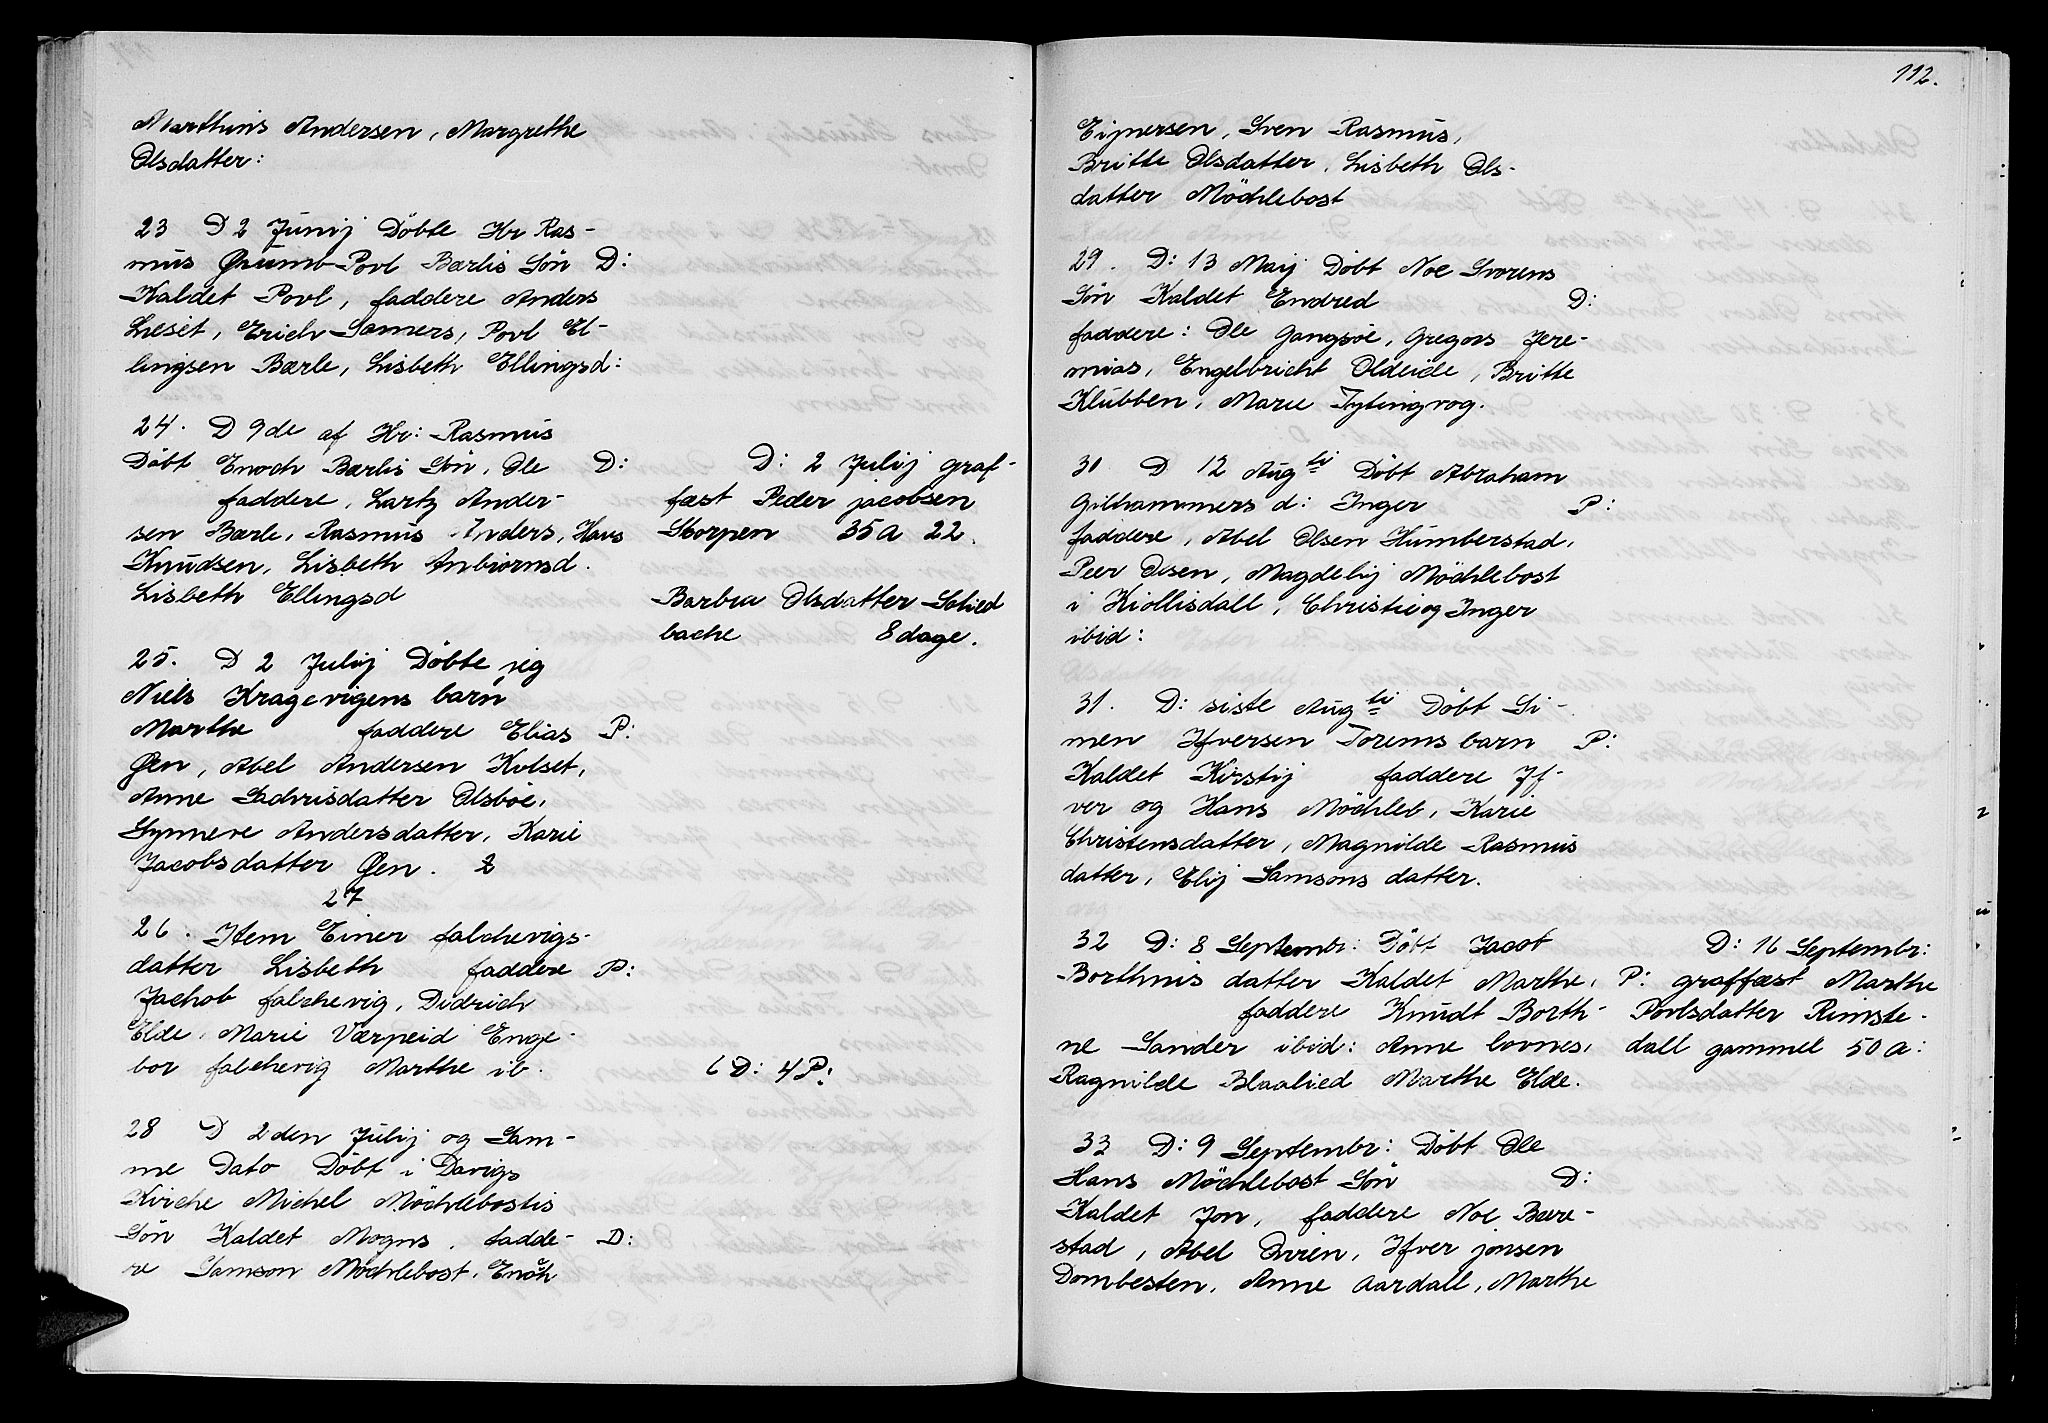 Marthins Andersen, Margrethe
Olsdatter:
23 D 2 Junij Döbte Hr Ras-
mus Ørumb Povl Bærlis Sön D:
Kaldet Povl, faddere Anders
Leset, Erich Somers, Povl El-
lingsen Bærle, Lisbeth Ellingsd:
24. D 9de af Hr: Rasmus
Döbt Enoch Bærlis Sön, Ole D:
faddere, Lartz Ander-
sen Bærle, Rasmus Anders, Hans
Knudsen, Lisbeth Anbiornsd.
Lisbeth Ellingsd
25. D 2 Julij Döbte jeg
Niels Kragevigens barn
Marthe faddere Elias P:
Øen, Abel Andersen Kolset,
Anne Sachrisdatter Olsböe,
Synneve Andersdatter, Karie
Jacobsdatter Øen. 2
27
26. Item Einer falchevigs-
datter Lisbeth faddere P:
Jachob falchevig, Didrich
Elde, Marie Værpeid Enge-
bor falchevig Marthe ib.
28 D 2den Julij og Sam-
me Dato Döbt i Davigs
Kirche Michel Möchlebostis
Sön Kaldet Mogns, fadde- D:
re Samson Möchlebost, Enoch
D: 2 Julij graf-
fæst Peder jacobsen
Skorpen 35 A 22.
Barbra Olsdatter Solied
bache 8 dage.
6 D: 4 P:
112.
Eijnersen, Sven Rasmus,
Britte Olsdatter, Lisbeth Ols-
datter Möchlebost
29. D: 13 Maij Döbt Noe Svorens
Sön Kaldet Endred D:
faddere: Ole Gangsöe, Gregors Jere-
mias, Engelbricht Oldeide, Britte
Klubben, Marie Tytingvog.
30 D 12 Augti Döbt Abraham
Gilhammers d: Inger P:
faddere, Abel Olsen Humberstad,
Peer Olsen, Magdelij Möchlebost
i Kiollisdall, Christie og Inger
ibid:
31. D: siste Augti Döbt Si-
men Ifversen Torems barn P:
Kaldet Kirstij faddere If-
ver og Hans Möchleb, Karie
Christensdatter, Magnilde Rasmus
datter, Elij Samsons datter.
32 D: 8 Septembr: Döbt Jacob
Borthnis datter Kaldet Marthe, P:
faddere Knudt Borth-
ne Sander ibid: Anne lovnes,
Ragnilde Blaalied Marthe Elde.
33 D: 9 Septembr: Döbt Ole
Hans Möchlebost Sön D:
Kaldet Jon, faddere Noe Bære-
stad, Abel Orrien, Ifver jonsen
Dombesten, Anne Aardall, Marthe
D: 16 Septembr:
graffæst Marthe
Povlsdatter Rimste-
dall gammel 50 A: